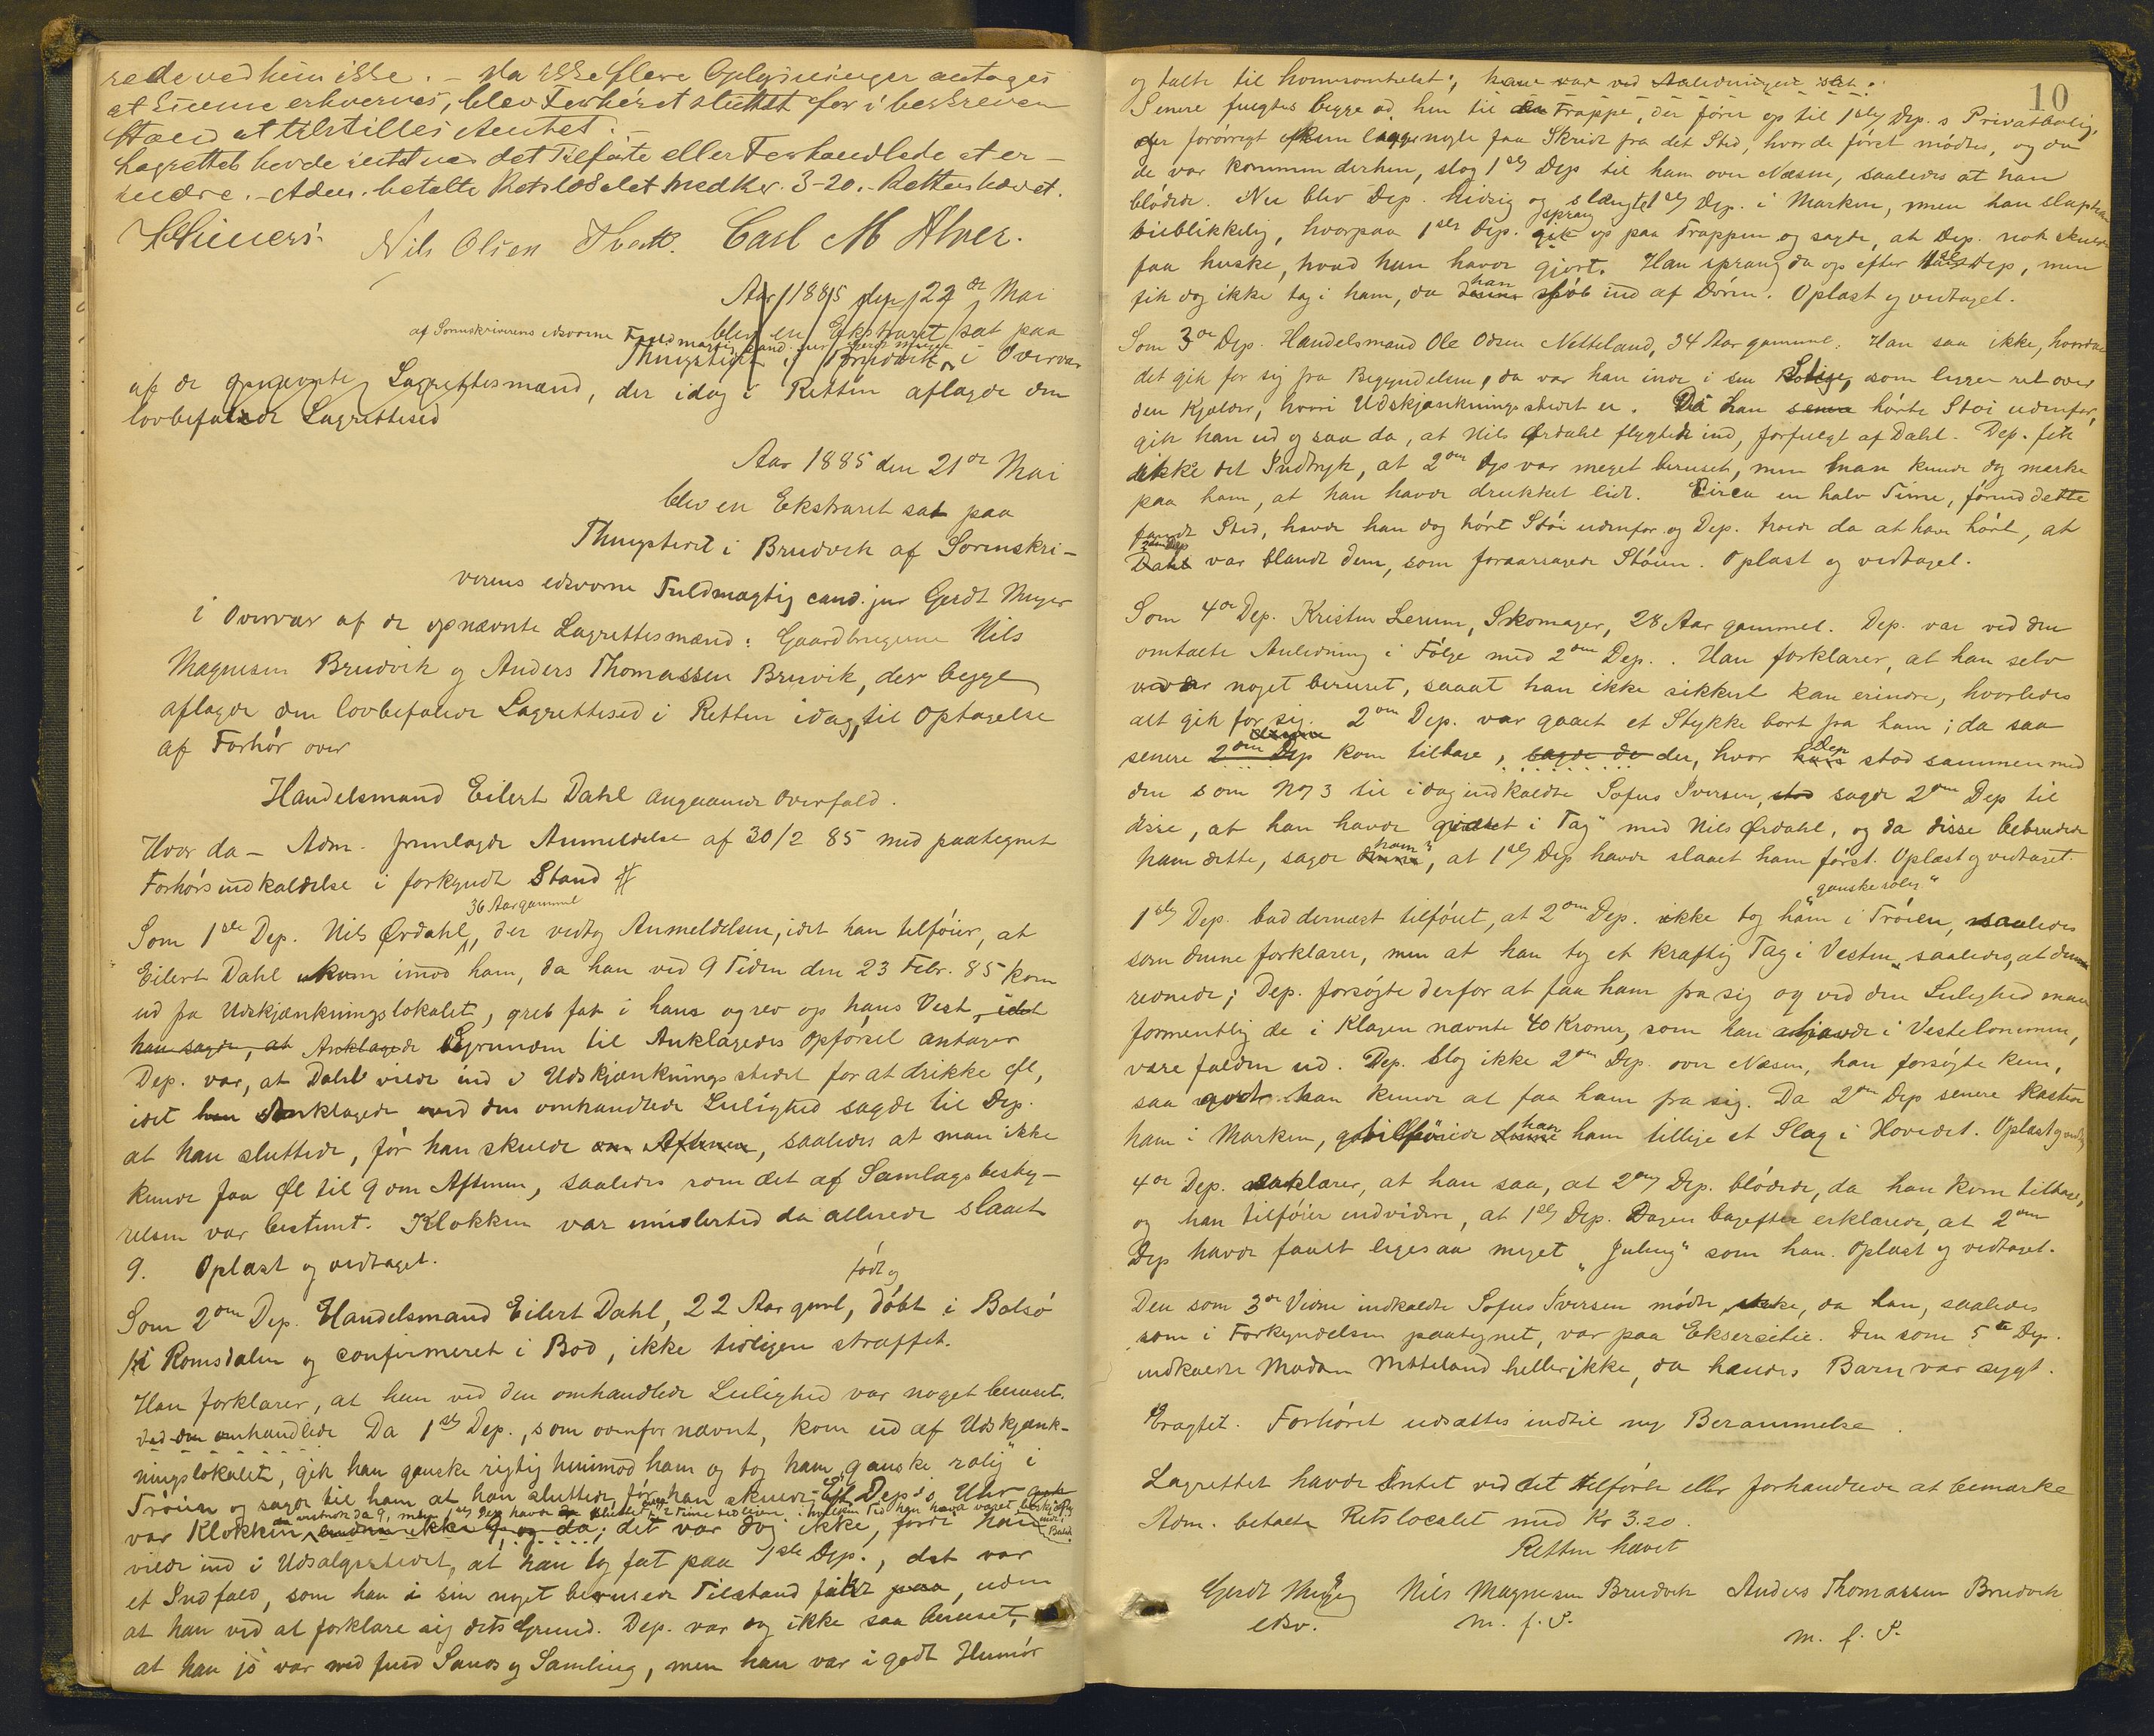 rede ved hiin ikke. – Da ikke flere Oplysninger antages
at kunne erhverves, blev Forhöret sluttet for i beskreven
Stand at tilstilles Amtet. –
Lagrettet havde intet ved det Tilförte eller Forhandlede at er-
indre. – Adm. betalte Retslocalet med Kr. 3-20. – Retten hævet.
Nils Olsen Carl M Alver.
Aar 1885 den 22de Mai
blev en Ekstraret sat paa
af Sorenskriverens edsvorne Fuldmægtig cand. jur Gerdt Meyer
Thingstedet i Bruvik i Overvær
af de opnævnte Lagrettesmænd, der idag i Retten aflagde den
lovbefalede Lagrettesed
Aar 1885 den 21de Mai
blev en Ekstraret sat paa
Thingstedet i Brudvik af Sorenskri-
verens edsvorne Fuldmægtig cand. jur Gerdt Meyer
i Overvær af de opnævnte Lagrettesmænd: Gaardbrugerne Nils
Magnesen Brudvik og Anders Thomassen Bruvik, der begge
aflagde den lovbefalede Lagrettesed i Retten idag, til Optagelse
af Forhör over
Handelsmand Eilert Dahl angaaende Overfald.
Hvor da – Adm. fremlagde Anmeldelse af 30/2 85 med paategnet
Forhörsindkaldelse i forkyndt Stand
36 Aar gammel
Som 1ste Dep. Nils Ørdahl, der vedtog Anmeldelsen, idet han tilföier, at
Eilert Dahl kom imod ham, da han ved 9 Tiden den 23 Febr. 85 kom
ud fra Udskjænkningslokalet, greb fat i ham og rev op hans Vest, idet
han sagde, at Anklagede Grunden til Anklagedes Opförsel antager
Dep. var, at Dahl vilde ind i Udskjænkningsstedet for at drikke Øl,
idet han Anklagede ved den omhandlede Leilighed sagde til Dep.
at han sluttede, för han skulde om Aftenen, saaledes at man ikke
kunde faa Øl til 9 om Aftenen, saaledes som det af Samlagsbesty-
relsen var bestemt. Klokken var imidlertid da allerede slaaet
9. Oplæst og vedtaget.
födt og
Som 2den Dep. Handelsmand Eilert Dahl, 22 Aar gml, döbt i Bolsö
i Romsdalen og confirmeret i Bod, ikke tidligere straffet.
Han forklarer, at han ved den omhandlede Leilighed var noget beruset.
ved den omhandlede Da 1ste Dep., som ovenfor nævnt, kom ud af Udskjænk-
ningslokalet, gik han ganske rigtig henimod ham og tog ham „ganske rolig" i
Tröien og sagde til ham at han sluttede, för han skulde; efter Dep's Uhr
var Klokken endnu ikke 9 og da; det var dog ikke, fordi han
vilde ind i Udsalgsstedet, at han tog fat paa 1ste Dep., det var
et Indfald, som han i sin noget berusede Tilstand fik paa, uden
at han ved at forklare sig dets Grund. Dep. var dog ikke saa beruset,
at han jo var med fuld Sands og Samling, men han var i godt Humör
10
og talte til hvemsomhelst; han var ved Anledningen
Senere fulgtes begge ad hen til en Trappe, der förer op til 1ste Dep.s Privatbolig,
der forövrigt kun ligger nogle faa Skridt fra det Sted, hvor de först mödtes, og da
de var kommen derhen, slog 1ste Dep til ham over Næsen, saaledes at han
blödede. Nu blev Dep. hidsig og slængte 1ste Dep. i Marken, men han slap ham
öieblikkelig, hvorpaa 1ste Dep. sprang gik op paa Trappen og sagde, at Dep. nok skulde
faa huske, hvad han havde gjort. Han sprang da op efter 1ste Dep, men
fik dog ikke tag i ham, da han denne slöb ind af Dören. Oplæst og vedtaget.
Som 3die Dep. Handelsmand Ole Odsen Netteland, 34 Aar gammel. Han saa ikke, hvordan
det gik for sig fra Begyndelsen, da var han inde i sin Bolig, som ligger ret over
den Kjælder, hvori Udskjænkningsstedet er. Da han senere hörte Stöi udenfor,
gik han ud og saa da, at Nils Ørdahl flygtede ind, forfulgt af Dahl. Dep. fik
ikke det Indtryk, at 2den Dep var meget beruset, men man kunde dog mærke
paa ham, at han havde drukket lidt. Circa en halv Time, förend dette
fandt Sted, havde han dog hört Stöi udenfor og Dep. troede da at have hört, at
2den Dep
Dahl var blandt dem, som foraarsagede Stöien. Oplæst og vedtaget.
Som 4de Dep. Kristen Lerum, Skomager, 28 Aar gammel. Dep. var ved den
omtalte Anledning i Fölge med 2den Dep. Han forklarer, at han selv
var noget beruset, saaat han ikke sikkert kan erindre, hvorledes
alt gik for sig. 2den Dep. var gaaet et Stykke bort fra ham; da saa
senere denne 2den Dep kom tilbage, sagde de der, hvor Dep han stod sammen med
den som No 3 til idag indkaldte Sofus Iversen, stod sagde 2den Dep til
disse, at han havde „ i Tag" med Nils Ørdahl, og da disse bebreidede
ham dette, sagde „han", at 1ste Dep havde slaaet ham först. Oplæst og vedtaget.
„ganske rolig"
1ste Dep. bad dernæst tilföiet, at 2den Dep. ikke tog ham i Tröien, saaledes
som denne forklarer, men at han tog et kraftig Tag i Vesten, saaledes, at denne
revnede; Dep. forsögte derfor at faa ham fra sig og ved den Leilighed maa
formentlig de i Klagen nævnte 40 Kroner, som han havde i Vestelommen,
være falden ud. Dep. slog ikke 2den Dep. over Næsen, han forsögte kun,
saa godt han kunde at faa ham fra sig. Da 2den Dep senere kastede
ham i Marken, tilföiede han denne ham tillige et Slag i Hovedet. Oplæst og vedt.
4de Dep. erklærer, at han saa, at 2den Dep. blödede, da han kom tilbage,
og han tilföier endvidere, at 1ste Dep. Dagen bagefter erklærede, at 2den
Dep havde faaet ligesaa meget „Juling" som han. Oplæst og vedtaget.
Den som 3die Vidne indkaldte Sofus Iversen mödte ikke, da han, saaledes
som i Forkyndelsen paategnet, var paa Ekserсitie. Den som 5te Dep.
indkaldte Madam Netteland heller ikke, da hendes Barn var sygt.
Eragtet. Forhöret udsættes indtil ny Berammelse.
Lagrettet havde Intet ved det tilförte eller forhandlede at bemærke
Adm. betalte Retslocalet med Kr 3.20.
Retten hævet
Gerdt Meyer Nils Magnesen Brudvik Anders Thomassen Brudvik
edsv. m. f. P. m. f. P.